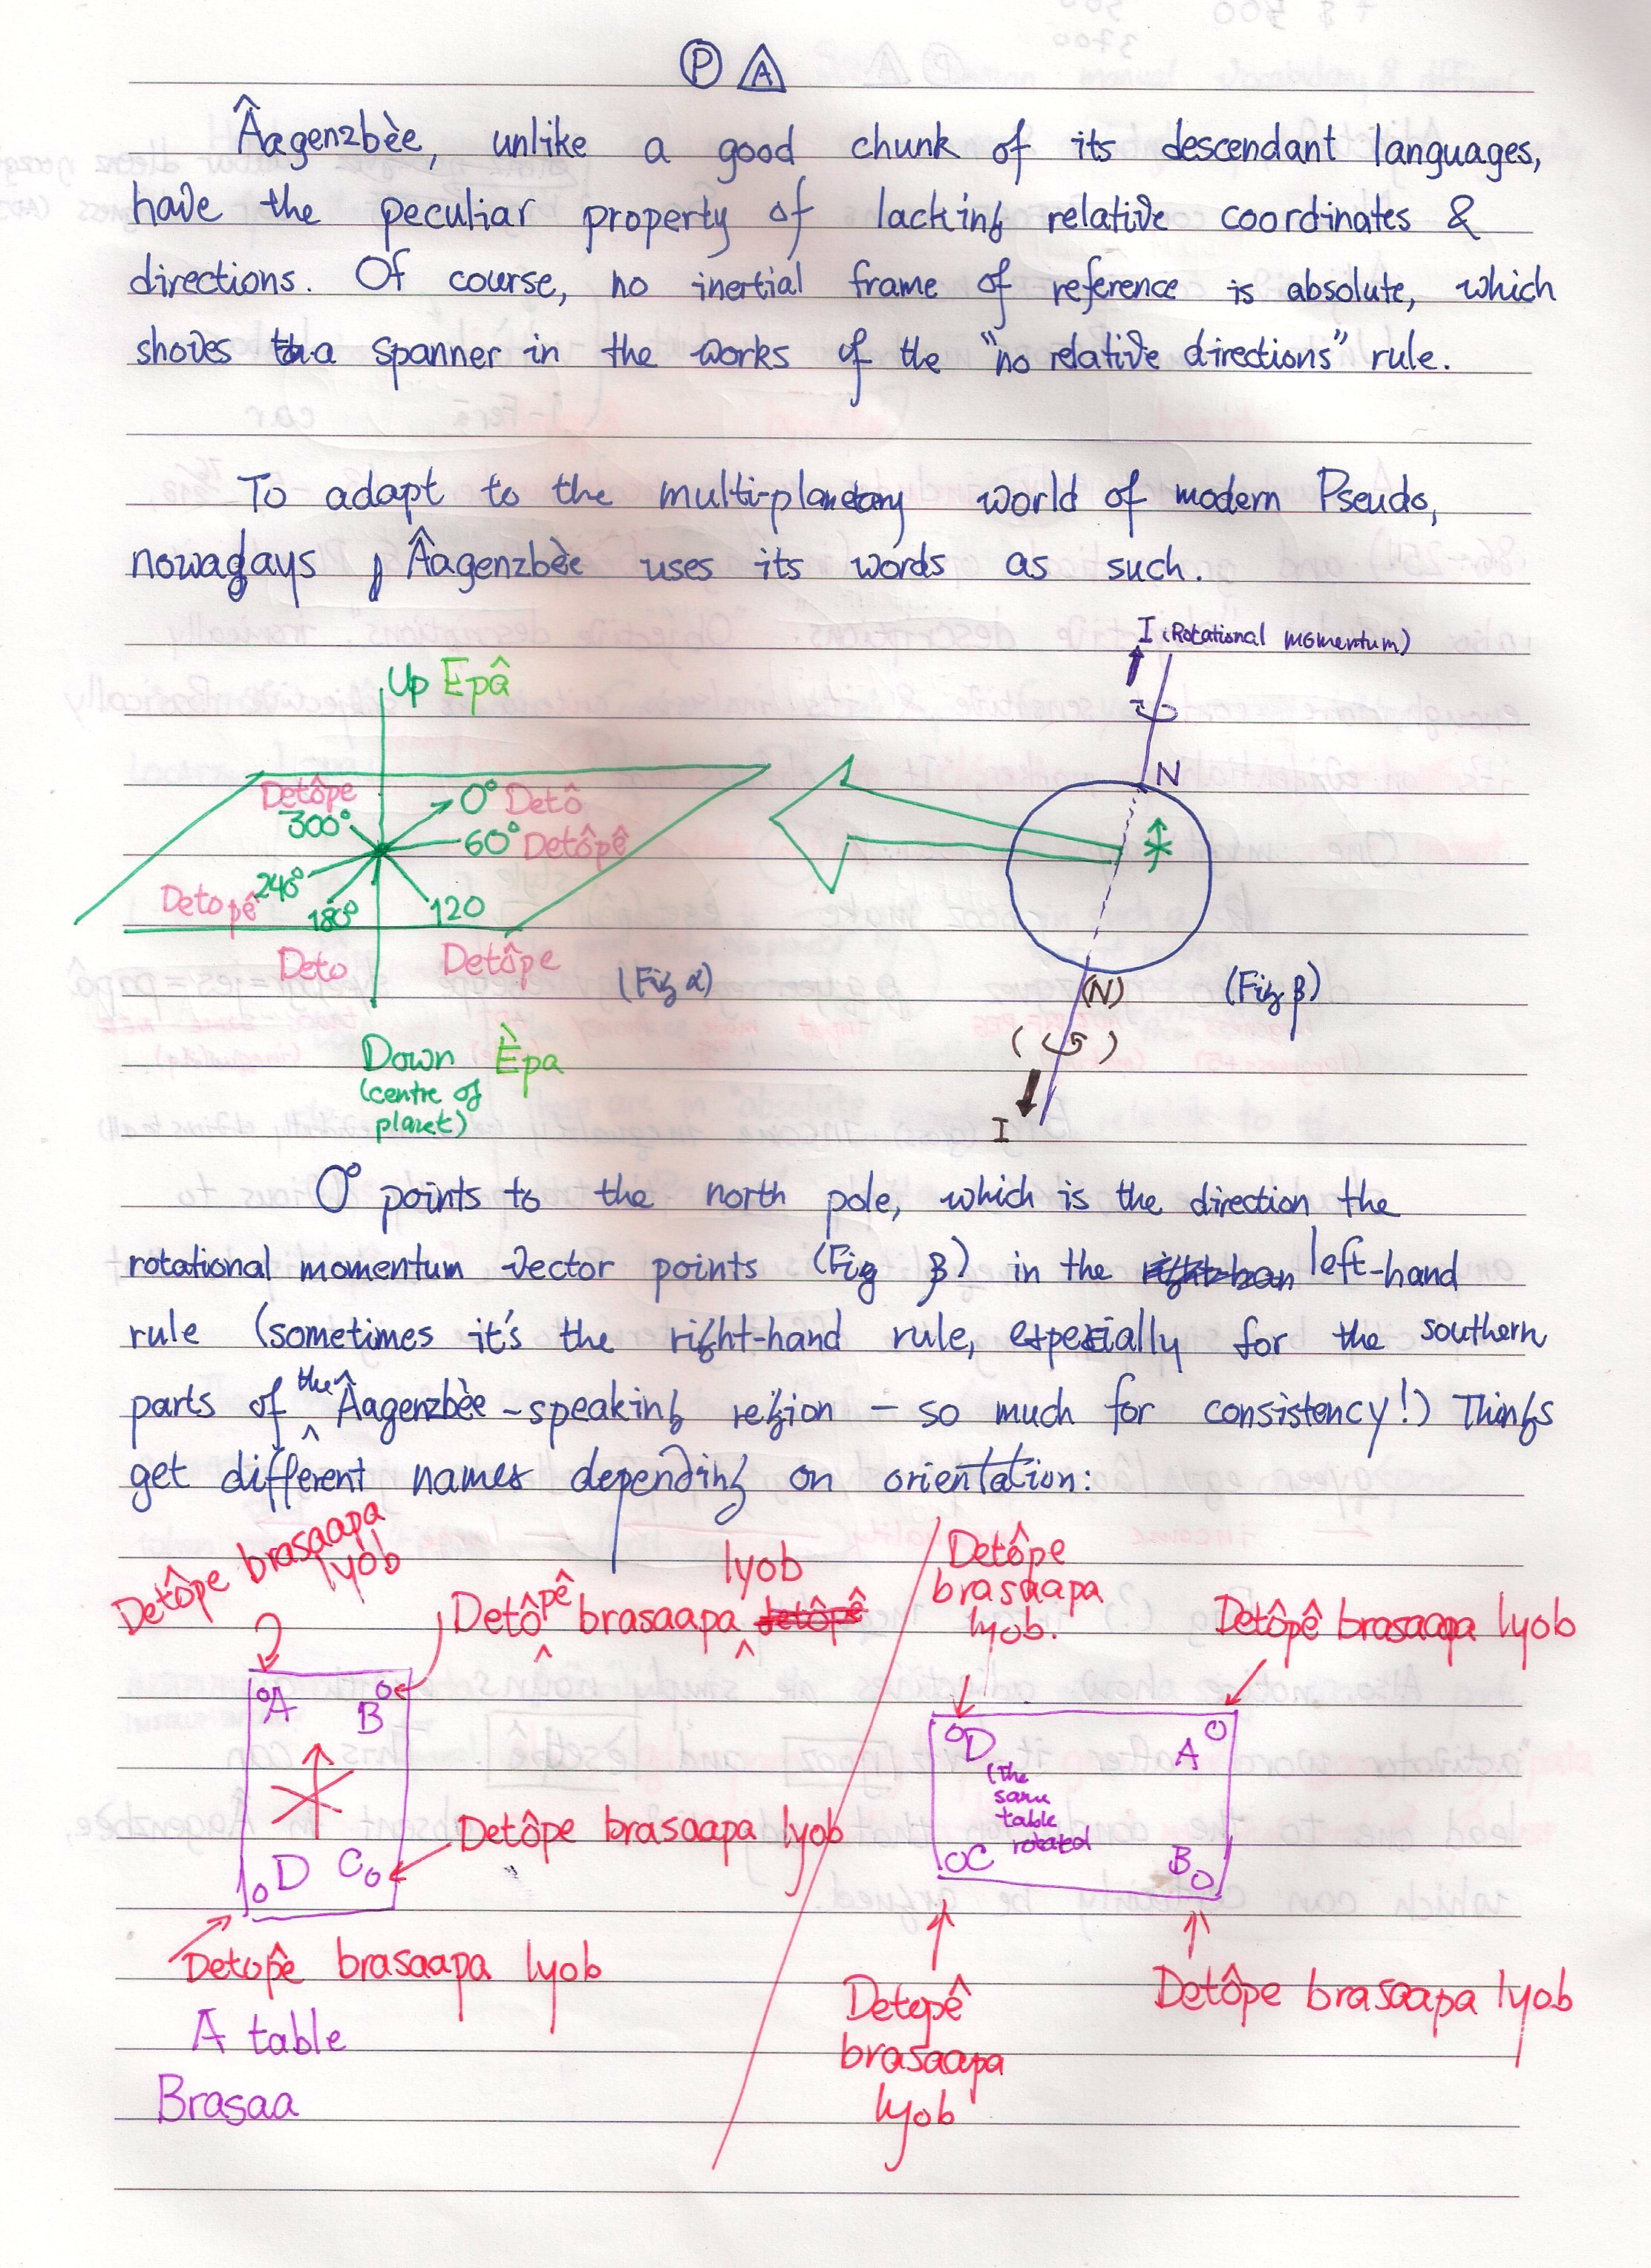 P A
Âagenzbèe, unlike a good chunk of its descendant languages,
have the peculiar property of lacking relative coordinates &
directions. Of course, no inertial frame of reference is absolute, which
shoves a spanner in the works of the "no relative directions" rule.
To adapt to the multi-planetary world of modern Pseudo,
nowadays Âagenzbèe uses its words as such.
I (Rotational momentum)
Up Epâ
N
Detôpe
300°
0° Detô
60° Detôpê
240°
Detopê
180°
120
Deto
Detôpe
(Fig α)
(N)
(Fig β)
Down Èpa
(centre of
planet)
I
0° points to the north pole, which is the direction the
rotational momentum vector points (Fig β) in the left-hand
rule (sometimes it's the right-hand rule, especially for the southern
parts of the Âagenzbèe-speaking region - so much for consistency!) Things
get different names depending on orientation:
Detôpe brasaapa
lyob
Detôpê brasaapa lyob detôpê
Detôpe
brasaapa
lyob.
Detôpê brasaapa lyob
A
B
D
A
(The
same
table
rotated
Detôpe brasaapa lyob
D
C
C
B
Detopê brasaapa lyob
Detopê
brasaapa
lyob
Detôpe brasaapa lyob
A table
Brasaa